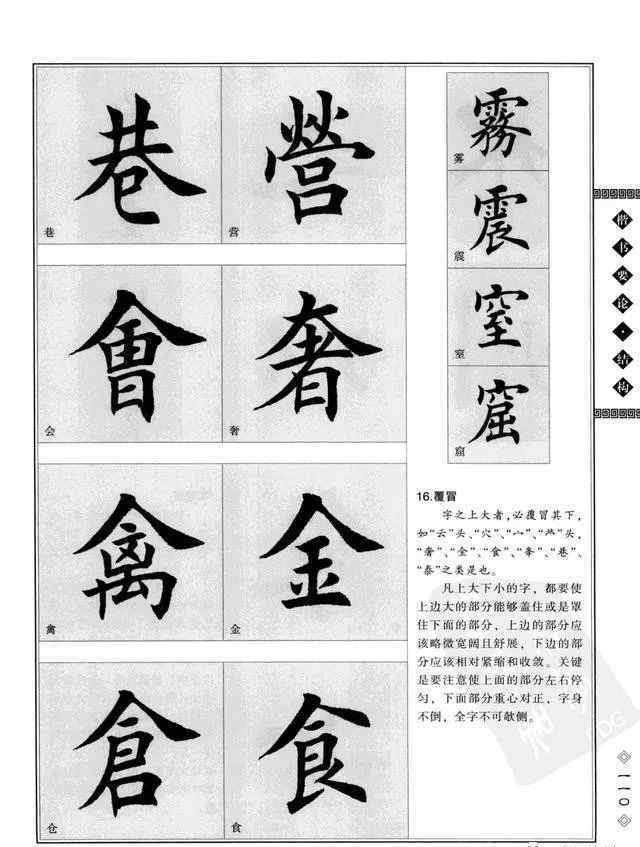 巷
巷
營
营
會
会
奢
奢
禽
禽
金
金
倉
仓
食
食
霧
雾
震
震
室
室
窟
窟
16.覆冒
字之上大者，必覆冒其下，
如“云”头、“穴”、“宀”、“癶”头，
“奢”、“金”、“食”、“夆”、“巷”、
“泰”之类是也。
凡上大下小的字，都要使
上边大的部分能够盖住或是罩
住下面的部分，上边的部分应
该略微宽阔且舒展，下边的部
分应该相对紧缩和收敛。关键
是要注意使上面的部分左右停
匀，下面部分重心对正，字身
不倒，全字不可欹侧。
楷书要论·结构
一一〇